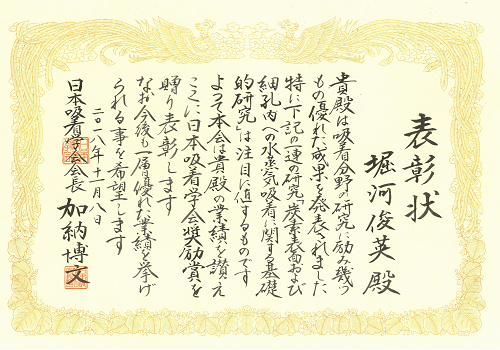 表彰状
堀河俊英殿
貴殿は吸着分野の研究に励み幾つ
もの優れた成果を発表されました
特に下記の一連の研究「炭素表面および
細孔内への水蒸気吸着に関する基礎
的研究」は注目に値するものです
よって本会は貴殿の業績を讃え
ここに日本吸着学会奨励賞を
贈り表彰します
なお今後も一層優れた業績を挙げ
られる事を希望します
二〇一八年十一月八日
日本吸着学会会長 加納博文